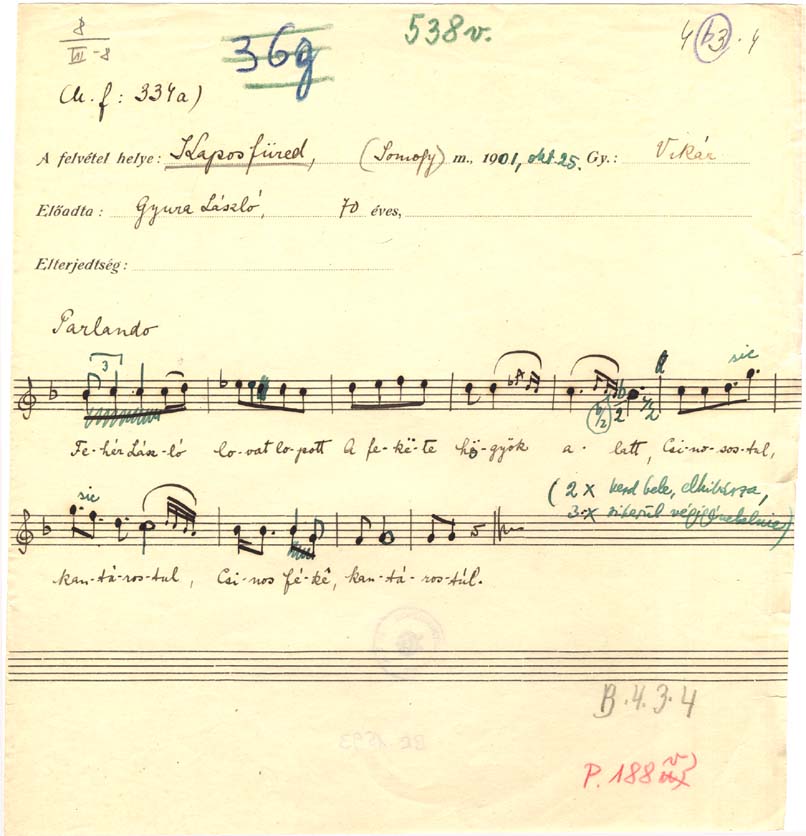 8
VII-8
36g
538v.
4 b3. 4
(M. f: 334a)
A felvétel helye: Kaposfüred, (Somogy) m., 1901, okt. 25. Gy.: Vikár
Előadta: Gyura László, 70 éves,
Elterjedtség:
Parlando
3
sic
b/2 2 7/2
Fe-hér Lász-ló lo-vat lo-pott A fe-kë-te hö-gyök a-latt, Csi-no-sos-tul,
sic
(2 x kezd bele, elhibázza,
3-x sikerül végigénekelnie)
kan-tá-ros-tul, Csi-nos fé-kê, kan-tá-ros-túl.
B.4.3.4
P. 188